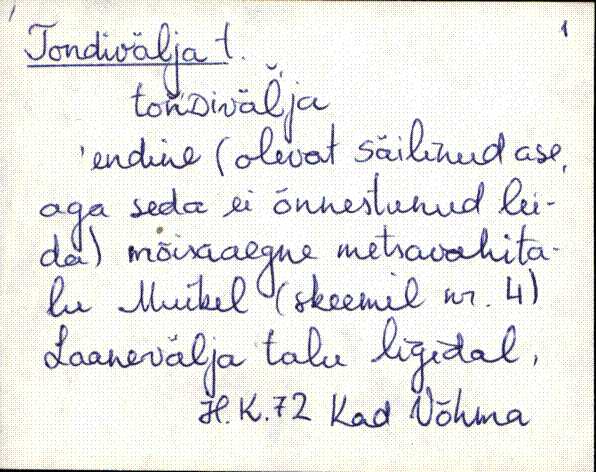 Tondivälja t. 1
tońDiväľja
'endine (olevat säilinud ase,
aga seda ei õnnestunud lei-
da) mõisaaegne metsavahita-
lu Muikel (skeemil nr. 4)
Laanevälja talu ligidal.
H.K.72 Kad Võhma